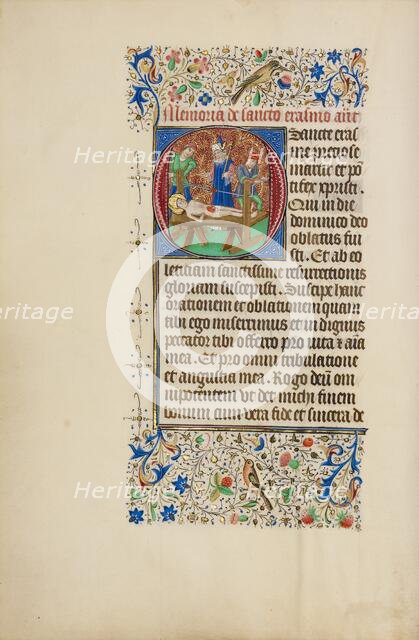 Memoria de sancto erasmo añt
Sancte eras
me preciose
martir et po
tifex xpristi
Qui in die
dominico deo
oblatus fui
sti. Et ab eo
leticiam sanctissime resurrectionis
gloriam suscepisti. Suscipe hanc
orationem et oblationem quam
tibi ego miserrimus et indignus
peccator tibi offerro pro vita et aīa
mea. Et pro omni tribulatione
et angustia mea. Rogo deū om
nipotentem vt det michi finem
bonum cum vera fide et sincera de
Heritage Heritage
Heritage Heritage
Heritage Heritage